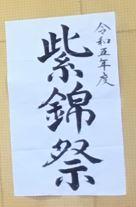 令和五年度
紫錦祭